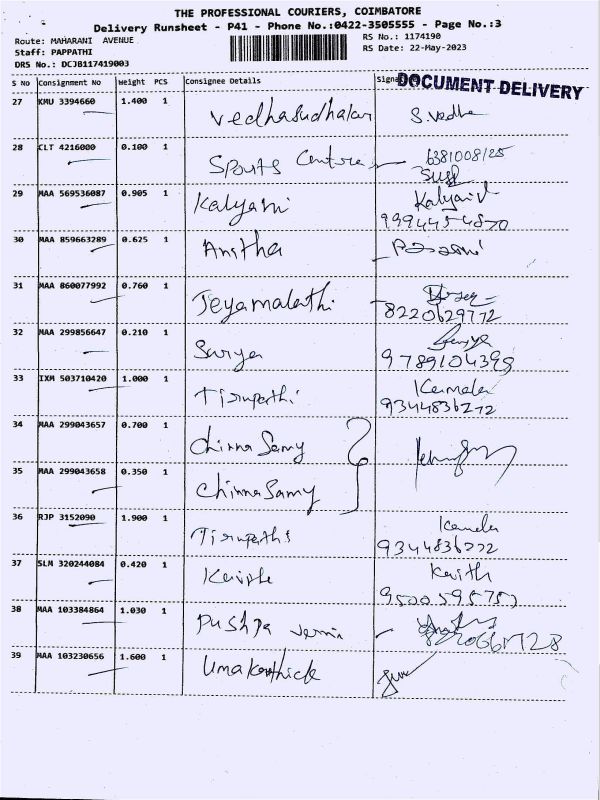 THE PROFESSIONAL COURIERS, COIMBATORE
Delivery Runsheet - P41 - Phone No.:0422-3505555 - Page No.:3
Route: MAHARANI AVENUE
RS No.: 1174190
Staff: PAPPATHI
RS Date: 22-May-2023
DRS No.: DCJB117419003
S No Consignment No Weight PCS Consignee Details
DOCUMENT DELIVERY
27 KMU 3394660 1.400 1 Vedhasudhakar S.Vedha
28 CLT 4216000 0.100 1 Sports Centre 6381008125
29 MAA 569536087 0.905 1 Kalyani Kalyani
9994454870
30 MAA 859663289 0.625 1 Anitha
31 MAA 860077992 0.760 1 Jeyamalathi
8220629772
32 MAA 299856647 0.210 1 Surya
9789104393
33 IXM 503710420 1.000 1 Tirupathi Kamala
9344836272
34 MAA 299043657 0.700 1 Chinna Samy
35 MAA 299043658 0.350 1 Chinna Samy
36 RJP 3152090 1.900 1 Tirupathi Kamala
9344836272
37 SLM 320244084 0.420 1 Kavith
9500595757
38 MAA 103384864 1.030 1 Pushpa
39 MAA 103230656 1.600 1 Umakarthick